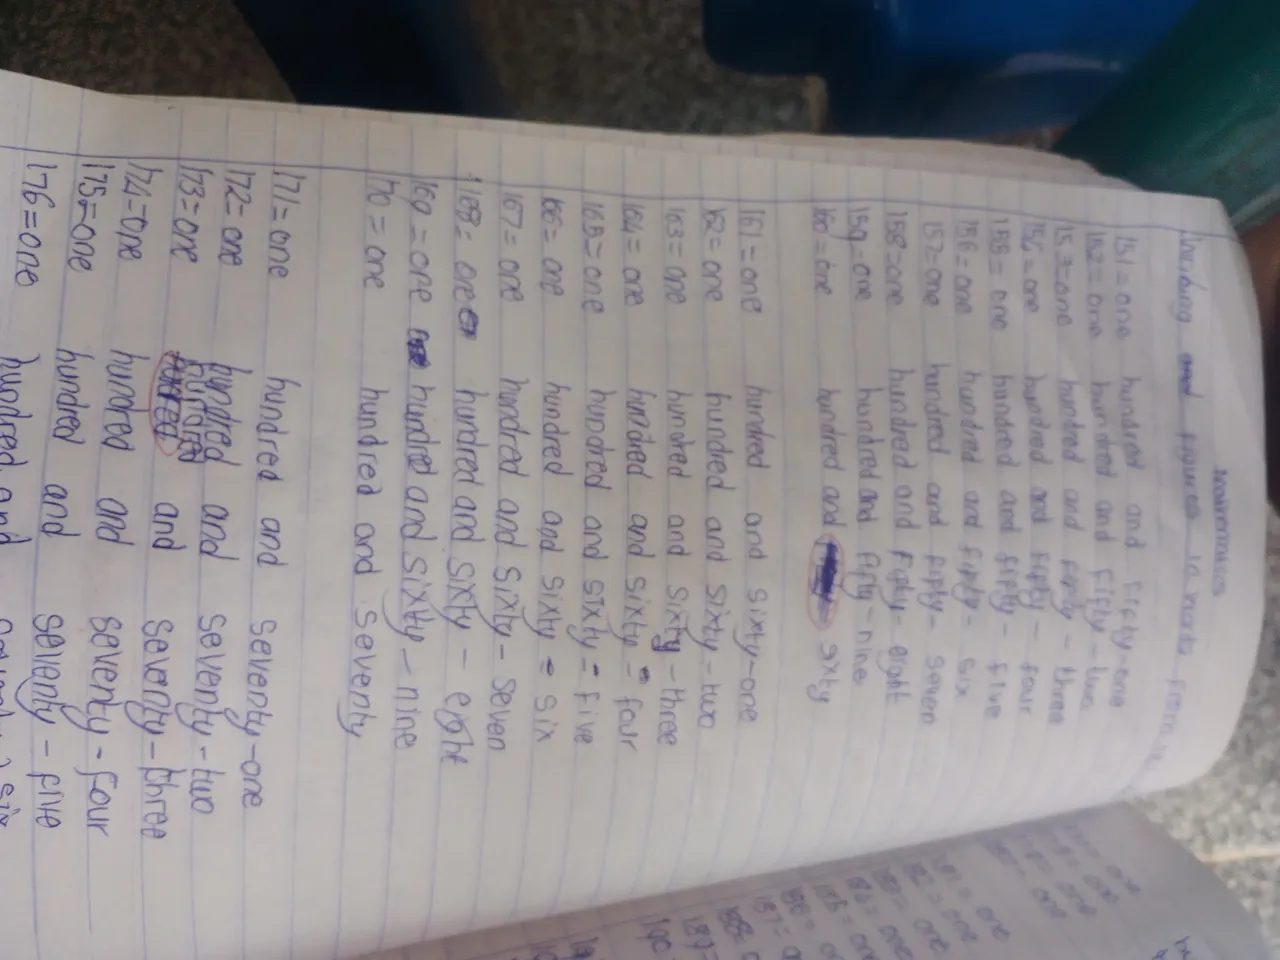 Mathematics
Writing figures in words from
151 = one hundred and fifty-one
152 = one hundred and fifty-two
153 = one hundred and fifty-three
154 = one hundred and fifty-four
155 = one hundred and fifty-five
156 = one hundred and fifty-six
157 = one hundred and fifty-seven
158 = one hundred and fifty-eight
159 = one hundred and fifty-nine
160 = one hundred and sxty
161 = one hundred and sixty-one
162 = one hundred and sixty-two
163 = one hundred and sixty-three
164 = one hundred and sixty-four
165 = one hundred and sixty-five
166 = one hundred and sixty-six
167 = one hundred and sixty-seven
168 = one hundred and sixty-eight
169 = one hundred and sixty-nine
170 = one hundred and seventy
171 = one hundred and seventy-one
172 = one hundred and seventy-two
173 = one hundred and seventy-three
174 = one hundred and seventy-four
175 = one hundred and seventy-five
176 = one hundred and six